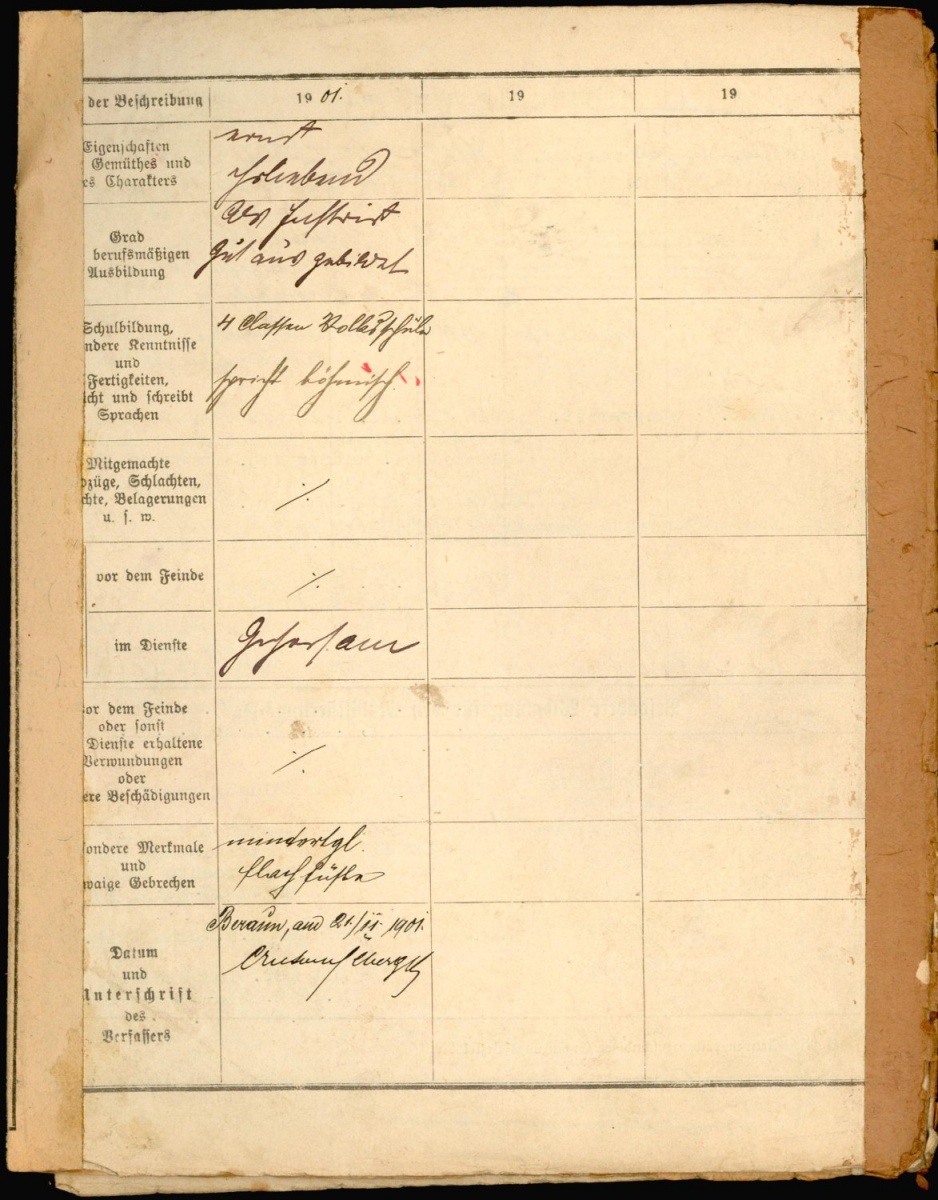 der Beschreibung
19 01.
19
19
Eigenschaften
Gemüthes und
es Charakters
ernst
ehrliebend
Grad
berufsmäßigen
Ausbildung
Als
Gut ausgebildet
Schulbildung,
ndere Kenntnisse
und
Fertigkeiten,
icht und schreibt
Sprachen
4 Classen Volksschule
spricht böhmisch.
Mitgemachte
dzüge, Schlachten,
chte, Belagerungen
u. s. w.
./.
vor dem Feinde
./.
im Dienste
Gehorsam
vor dem Feinde
oder sonst
Dienste erhaltene
Verwundungen
oder
ere Beschädigungen
./.
sondere Merkmale
und
waige Gebrechen
mindergl.
flachfüße
Datum
und
Unterschrift
des
Verfassers
Beraun, am 21/II 1901.